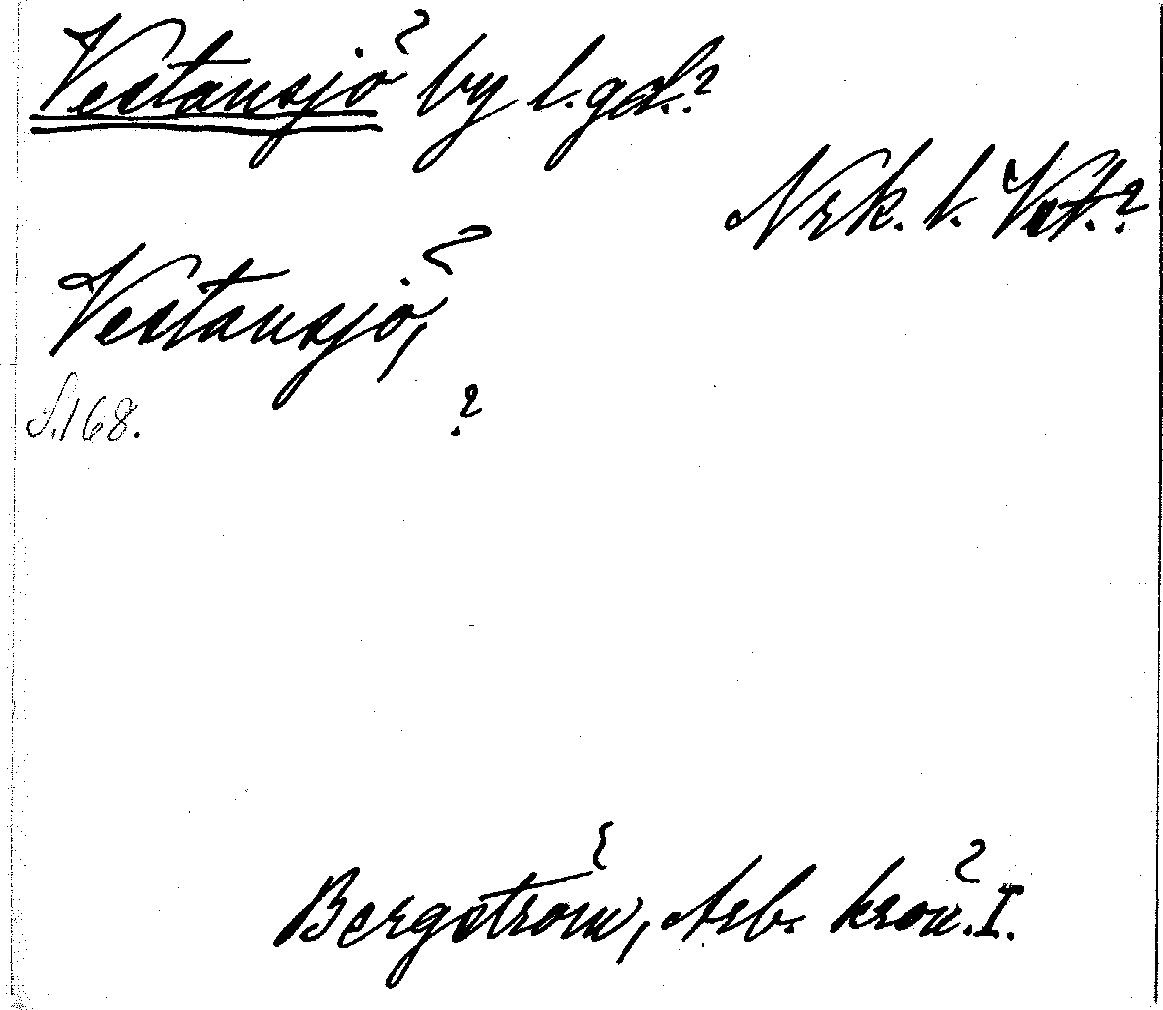 Vestansjö by l. gd.?
Nrk. l. Vst.?
Vestansjö,
S. 168. ?
Bergström, Arb. krön. I.